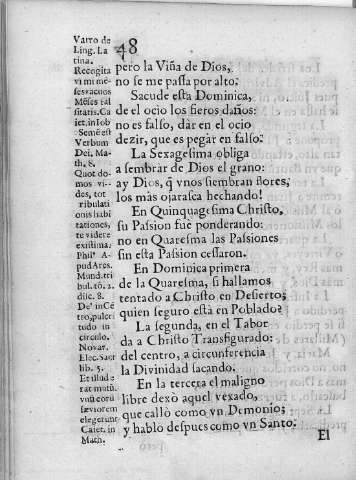 48
Varro de
Ling. La
tina.
Recogita
vi mi me
ses vacuos
Mẽses ral
sitatis. Ca
iet. in Iob
Semẽ est
Verbum
Dei. Mat
th. 8.
Quot do-
mos vi-
des, tot
tribulati
onis habi
tationes,
te videre
existima.
Phil° A-
pud Ares.
Mund. tri
bul. tõ. 2.
disc. 8.
De' in Cẽ
tro, pulcri
tudo in
circulo.
Novar.
Elec. Sacr
lib. 5.
Caiet. in
Math.
pero la Viña de Dios,
no se me passa por alto.
Sacude esta Dominica,
de el ocio los fieros daños:
no es falso, dar en el ocio
dezir, que es pegar en falso.
La Sexagesima obliga
a sembrar de Dios el grano:
ay Dios, q̃ vnos siembran flores,
los mas ojarasca hechando!
En Quinquagesima Christo,
su Passion fue ponderando:
no en Quaresma las Passiones
sin esta Passion cessaron.
En Dominica primera
de la Quaresma, si hallamos
tentado a Christo en Desierto;
quien seguro està en Poblado?
La segunda, en el Tabor
da a Christo Transfigurado:
del centro, a circunferencia
la Divinidad sacando.
En la tercera el maligno
libre dexò aquel vexado,
que callò como vn Demonio;
y hablo despues como vn Santo.
El